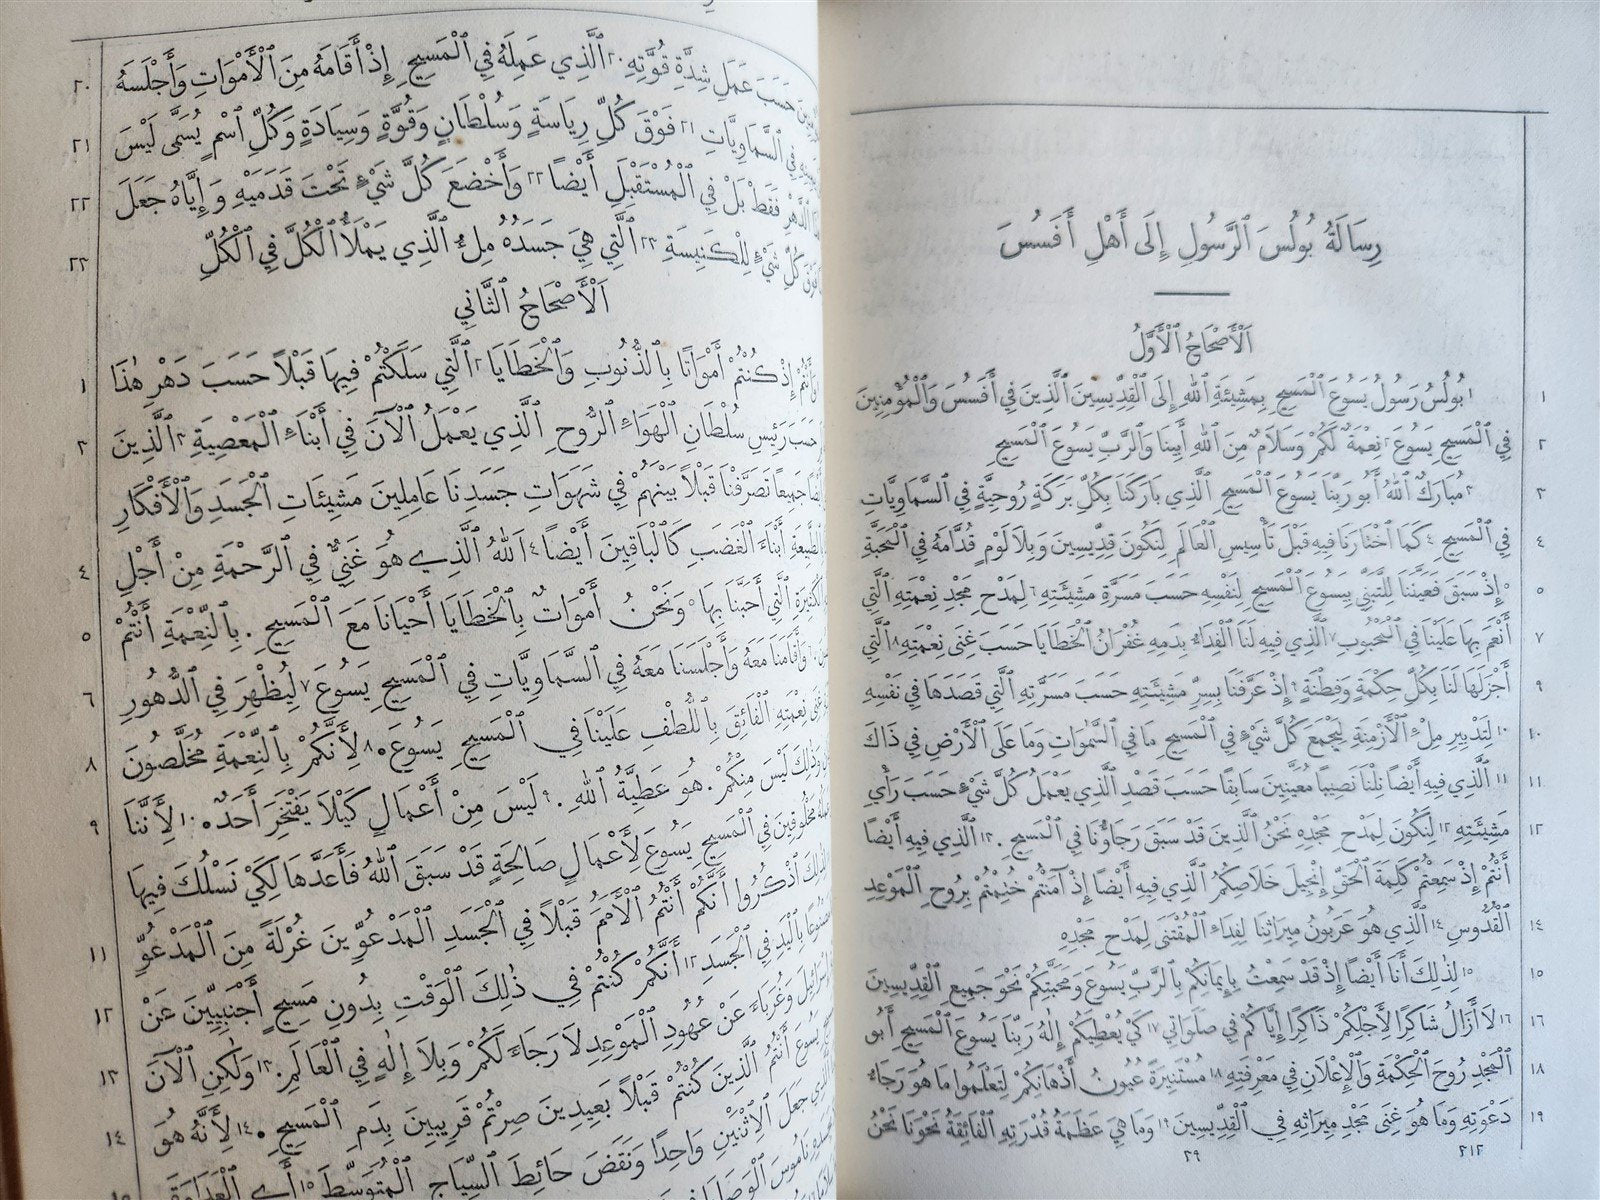 رِسَالَةُ بُولُسَ ٱلرَّسُولِ إِلَى أَهْلِ أَفَسُسَ
اَلْأَصْحَاحُ ٱلْأَوَّلُ
١ ١بُولُسُ رَسُولُ يَسُوعَ ٱلْمَسِيحِ بِمَشِيئَةِ ٱللهِ إِلَى ٱلْقِدِّيسِينَ ٱلَّذِينَ فِي أَفَسُسَ وَٱلْمُؤْمِنِينَ
٢ فِي ٱلْمَسِيحِ يَسُوعَ ٢نِعْمَةٌ لَكُمْ وَسَلَامٌ مِنَ ٱللهِ أَبِينَا وَٱلرَّبِّ يَسُوعَ ٱلْمَسِيحِ
٣ ٣مُبَارَكٌ ٱللهُ أَبُو رَبِّنَا يَسُوعَ ٱلْمَسِيحِ ٱلَّذِي بَارَكَنَا بِكُلِّ بَرَكَةٍ رُوحِيَّةٍ فِي ٱلسَّمَاوِيَّاتِ
٤ فِي ٱلْمَسِيحِ ٤كَمَا ٱخْتَارَنَا فِيهِ قَبْلَ تَأْسِيسِ ٱلْعَالَمِ لِنَكُونَ قِدِّيسِينَ وَبِلَا لَوْمٍ قُدَّامَهُ فِي ٱلْمَحَبَّةِ
٥ ٥إِذْ سَبَقَ فَعَيَّنَنَا لِلتَّبَنِّي بِيَسُوعَ ٱلْمَسِيحِ لِنَفْسِهِ حَسَبَ مَسَرَّةِ مَشِيئَتِهِ ٦لِمَدْحِ مَجْدِ نِعْمَتِهِ ٱلَّتِي
٧ أَنْعَمَ بِهَا عَلَيْنَا فِي ٱلْمَحْبُوبِ ٧ٱلَّذِي فِيهِ لَنَا ٱلْفِدَاءُ بِدَمِهِ غُفْرَانُ ٱلْخَطَايَا حَسَبَ غِنَى نِعْمَتِهِ ٨ٱلَّتِي
٩ أَجْزَلَهَا لَنَا بِكُلِّ حِكْمَةٍ وَفِطْنَةٍ ٩إِذْ عَرَّفَنَا بِسِرِّ مَشِيئَتِهِ حَسَبَ مَسَرَّتِهِ ٱلَّتِي قَصَدَهَا فِي نَفْسِهِ
١٠ ١٠لِتَدْبِيرِ مِلْءِ ٱلْأَزْمِنَةِ لِيَجْمَعَ كُلَّ شَيْءٍ فِي ٱلْمَسِيحِ مَا فِي ٱلسَّمٰوَاتِ وَمَا عَلَى ٱلْأَرْضِ فِي ذَاكَ
١١ ١١ٱلَّذِي فِيهِ أَيْضًا نِلْنَا نَصِيبًا مُعَيَّنِينَ سَابِقًا حَسَبَ قَصْدِ ٱلَّذِي يَعْمَلُ كُلَّ شَيْءٍ حَسَبَ رَأْيِ
١٢ مَشِيئَتِهِ ١٢لِنَكُونَ لِمَدْحِ مَجْدِهِ نَحْنُ ٱلَّذِينَ قَدْ سَبَقَ رَجَاؤُنَا فِي ٱلْمَسِيحِ. ١٣ٱلَّذِي فِيهِ أَيْضًا
أَنْتُمْ إِذْ سَمِعْتُمْ كَلِمَةَ ٱلْحَقِّ إِنْجِيلَ خَلَاصِكُمُ ٱلَّذِي فِيهِ أَيْضًا إِذْ آمَنْتُمْ خُتِمْتُمْ بِرُوحِ ٱلْمَوْعِدِ
١٤ ٱلْقُدُّوسِ ١٤ٱلَّذِي هُوَ عَرَبُونُ مِيرَاثِنَا لِفِدَاءِ ٱلْمُقْتَنَى لِمَدْحِ مَجْدِهِ
١٥ ١٥لِذٰلِكَ أَنَا أَيْضًا إِذْ قَدْ سَمِعْتُ بِإِيمَانِكُمْ بِٱلرَّبِّ يَسُوعَ وَمَحَبَّتِكُمْ نَحْوَ جَمِيعِ ٱلْقِدِّيسِينَ
١٦ ١٦لَا أَزَالُ شَاكِرًا لِأَجْلِكُمْ ذَاكِرًا إِيَّاكُمْ فِي صَلَوَاتِي ١٧كَيْ يُعْطِيَكُمْ إِلٰهُ رَبِّنَا يَسُوعَ ٱلْمَسِيحِ أَبُو
١٨ ٱلْمَجْدِ رُوحَ ٱلْحِكْمَةِ وَٱلْإِعْلَانِ فِي مَعْرِفَتِهِ ١٨مُسْتَنِيرَةً عُيُونُ أَذْهَانِكُمْ لِتَعْلَمُوا مَا هُوَ رَجَاءُ
١٩ دَعْوَتِهِ وَمَا هُوَ غِنَى مَجْدِ مِيرَاثِهِ فِي ٱلْقِدِّيسِينَ ١٩وَمَا هِيَ عَظَمَةُ قُدْرَتِهِ ٱلْفَائِقَةُ نَحْوَنَا نَحْنُ
٢٩ ٣١٢
٢٠ حَسَبَ عَمَلِ شِدَّةِ قُوَّتِهِ ٢٠ٱلَّذِي عَمِلَهُ فِي ٱلْمَسِيحِ إِذْ أَقَامَهُ مِنَ ٱلْأَمْوَاتِ وَأَجْلَسَهُ
٢١ فِي ٱلسَّمَاوِيَّاتِ ٢١فَوْقَ كُلِّ رِيَاسَةٍ وَسُلْطَانٍ وَقُوَّةٍ وَسِيَادَةٍ وَكُلِّ ٱسْمٍ يُسَمَّى لَيْسَ
٢٢ ٱلدَّهْرِ فَقَطْ بَلْ فِي ٱلْمُسْتَقْبَلِ أَيْضًا ٢٢وَأَخْضَعَ كُلَّ شَيْءٍ تَحْتَ قَدَمَيْهِ وَإِيَّاهُ جَعَلَ
٢٣ فَوْقَ كُلِّ شَيْءٍ لِلْكَنِيسَةِ ٢٣ٱلَّتِي هِيَ جَسَدُهُ مِلْءُ ٱلَّذِي يَمْلَأُ ٱلْكُلَّ فِي ٱلْكُلِّ
اَلْأَصْحَاحُ ٱلثَّانِي
١ إِذْ كُنْتُمْ أَمْوَاتًا بِٱلذُّنُوبِ وَٱلْخَطَايَا ٢ٱلَّتِي سَلَكْتُمْ فِيهَا قَبْلًا حَسَبَ دَهْرِ هٰذَا
٢ حَسَبَ رَئِيسِ سُلْطَانِ ٱلْهَوَاءِ ٱلرُّوحِ ٱلَّذِي يَعْمَلُ ٱلْآنَ فِي أَبْنَاءِ ٱلْمَعْصِيَةِ ٣ٱلَّذِينَ
جَمِيعًا تَصَرَّفْنَا قَبْلًا بَيْنَهُمْ فِي شَهَوَاتِ جَسَدِنَا عَامِلِينَ مَشِيئَاتِ ٱلْجَسَدِ وَٱلْأَفْكَارِ
٤ أَبْنَاءَ ٱلْغَضَبِ كَٱلْبَاقِينَ أَيْضًا ٤ٱللهُ ٱلَّذِي هُوَ غَنِيٌّ فِي ٱلرَّحْمَةِ مِنْ أَجْلِ
٥ ٱلْكَثِيرَةِ ٱلَّتِي أَحَبَّنَا بِهَا ٥وَنَحْنُ أَمْوَاتٌ بِٱلْخَطَايَا أَحْيَانَا مَعَ ٱلْمَسِيحِ. بِٱلنِّعْمَةِ أَنْتُمْ
٦ ٦وَأَقَامَنَا مَعَهُ وَأَجْلَسَنَا مَعَهُ فِي ٱلسَّمَاوِيَّاتِ فِي ٱلْمَسِيحِ يَسُوعَ ٧لِيُظْهِرَ فِي ٱلدُّهُورِ
٨ غِنَى نِعْمَتِهِ ٱلْفَائِقَ بِٱللُّطْفِ عَلَيْنَا فِي ٱلْمَسِيحِ يَسُوعَ. ٨لِأَنَّكُمْ بِٱلنِّعْمَةِ مُخَلَّصُونَ
٩ وَذٰلِكَ لَيْسَ مِنْكُمْ. هُوَ عَطِيَّةُ ٱللهِ. ٩لَيْسَ مِنْ أَعْمَالٍ كَيْلَا يَفْتَخِرَ أَحَدٌ. ١٠لِأَنَّنَا
مَخْلُوقِينَ فِي ٱلْمَسِيحِ يَسُوعَ لِأَعْمَالٍ صَالِحَةٍ قَدْ سَبَقَ ٱللهُ فَأَعَدَّهَا لِكَيْ نَسْلُكَ فِيهَا
١١ ٱذْكُرُوا أَنَّكُمْ أَنْتُمُ ٱلْأُمَمَ قَبْلًا فِي ٱلْجَسَدِ ٱلْمَدْعُوِّينَ غُرْلَةً مِنَ ٱلْمَدْعُوِّ
١٢ بِٱلْيَدِ فِي ٱلْجَسَدِ ١٢أَنَّكُمْ كُنْتُمْ فِي ذٰلِكَ ٱلْوَقْتِ بِدُونِ مَسِيحٍ أَجْنَبِيِّينَ عَنْ
١٣ إِسْرَائِيلَ وَغُرَبَاءَ عَنْ عُهُودِ ٱلْمَوْعِدِ لَا رَجَاءَ لَكُمْ وَبِلَا إِلٰهٍ فِي ٱلْعَالَمِ. ١٣وَلٰكِنِ ٱلْآنَ
١٤ يَسُوعَ أَنْتُمُ ٱلَّذِينَ كُنْتُمْ قَبْلًا بَعِيدِينَ صِرْتُمْ قَرِيبِينَ بِدَمِ ٱلْمَسِيحِ. ١٤لِأَنَّهُ هُوَ
جَعَلَ ٱلِٱثْنَيْنِ وَاحِدًا وَنَقَضَ حَائِطَ ٱلسِّيَاجِ ٱلْمُتَوَسِّطَ ١٥أَيِ ٱلْعَدَاوَةَ
نَامُوسَ ٱلْوَصَايَا